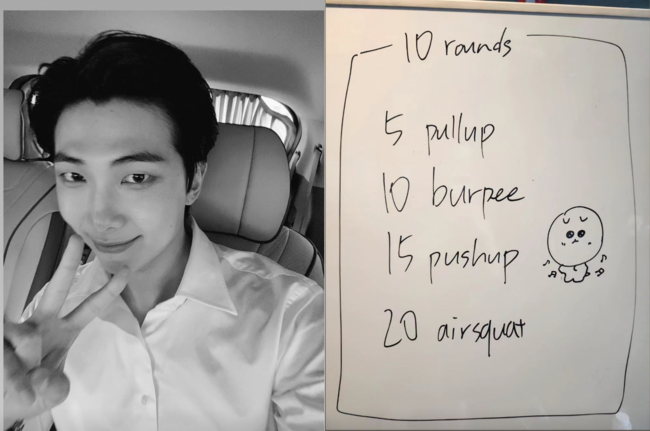 10 rounds
5 pullup
10 burpee
15 pushup
20 airsquat